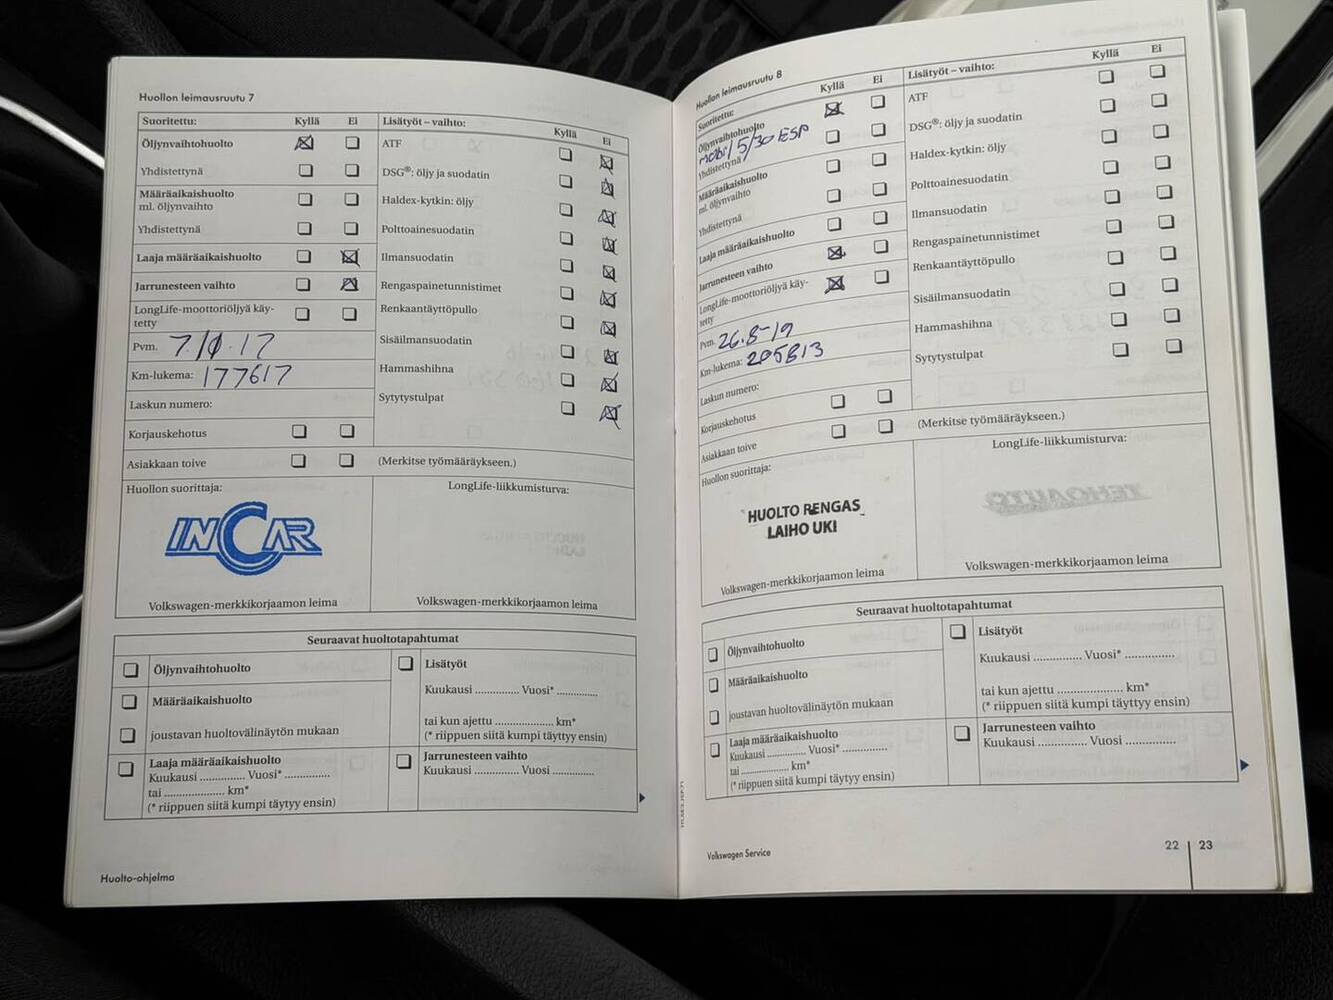 Huollon leimausruutu 7
Suoritettu: Kyllä Ei
Öljynvaihtohuolto
Yhdistettynä
Määräaikaishuolto
ml. öljynvaihto
Yhdistettynä
Laaja määräaikaishuolto
Jarrunesteen vaihto
LongLife-moottoriöljyä käy-
tetty
Pvm. 7.10.17
Km-lukema: 177617
Laskun numero:
Korjauskehotus
Asiakkaan toive
Lisätyöt – vaihto: Kyllä Ei
ATF
DSG®: öljy ja suodatin
Haldex-kytkin: öljy
Polttoainesuodatin
Ilmansuodatin
Rengaspainetunnistimet
Renkaantäyttöpullo
Sisäilmansuodatin
Hammashihna
Sytytystulpat
(Merkitse työmääräykseen.)
Huollon suorittaja:
INCAR
Volkswagen-merkkikorjaamon leima
LongLife-liikkumisturva:
Volkswagen-merkkikorjaamon leima
Seuraavat huoltotapahtumat
Öljynvaihtohuolto
Määräaikaishuolto
joustavan huoltovälinäytön mukaan
Laaja määräaikaishuolto
Kuukausi .............. Vuosi* ..............
tai .................... km*
(* riippuen siitä kumpi täytyy ensin)
Lisätyöt
Kuukausi .............. Vuosi* .............
tai kun ajettu .................... km*
(* riippuen siitä kumpi täytyy ensin)
Jarrunesteen vaihto
Kuukausi .............. Vuosi .............
Huolto-ohjelma
Huollon leimausruutu 8
Suoritettu: Kyllä Ei
Öljynvaihtohuolto
mobil 5/30 ESP
Yhdistettynä
Määräaikaishuolto
ml. öljynvaihto
Yhdistettynä
Laaja määräaikaishuolto
Jarrunesteen vaihto
LongLife-moottoriöljyä käy-
tetty
Pvm. 26.8-19
Km-lukema: 205813
Laskun numero:
Korjauskehotus
Asiakkaan toive
Lisätyöt – vaihto: Kyllä Ei
ATF
DSG®: öljy ja suodatin
Haldex-kytkin: öljy
Polttoainesuodatin
Ilmansuodatin
Rengaspainetunnistimet
Renkaantäyttöpullo
Sisäilmansuodatin
Hammashihna
Sytytystulpat
(Merkitse työmääräykseen.)
Huollon suorittaja:
HUOLTO RENGAS
LAIHO UKI
Volkswagen-merkkikorjaamon leima
LongLife-liikkumisturva:
Volkswagen-merkkikorjaamon leima
Seuraavat huoltotapahtumat
Öljynvaihtohuolto
Määräaikaishuolto
joustavan huoltovälinäytön mukaan
Laaja määräaikaishuolto
Kuukausi .............. Vuosi* ..............
tai .................... km*
(* riippuen siitä kumpi täytyy ensin)
Lisätyöt
Kuukausi .............. Vuosi* ..............
tai kun ajettu .................... km*
(* riippuen siitä kumpi täytyy ensin)
Jarrunesteen vaihto
Kuukausi .............. Vuosi ..............
Volkswagen Service
22 | 23